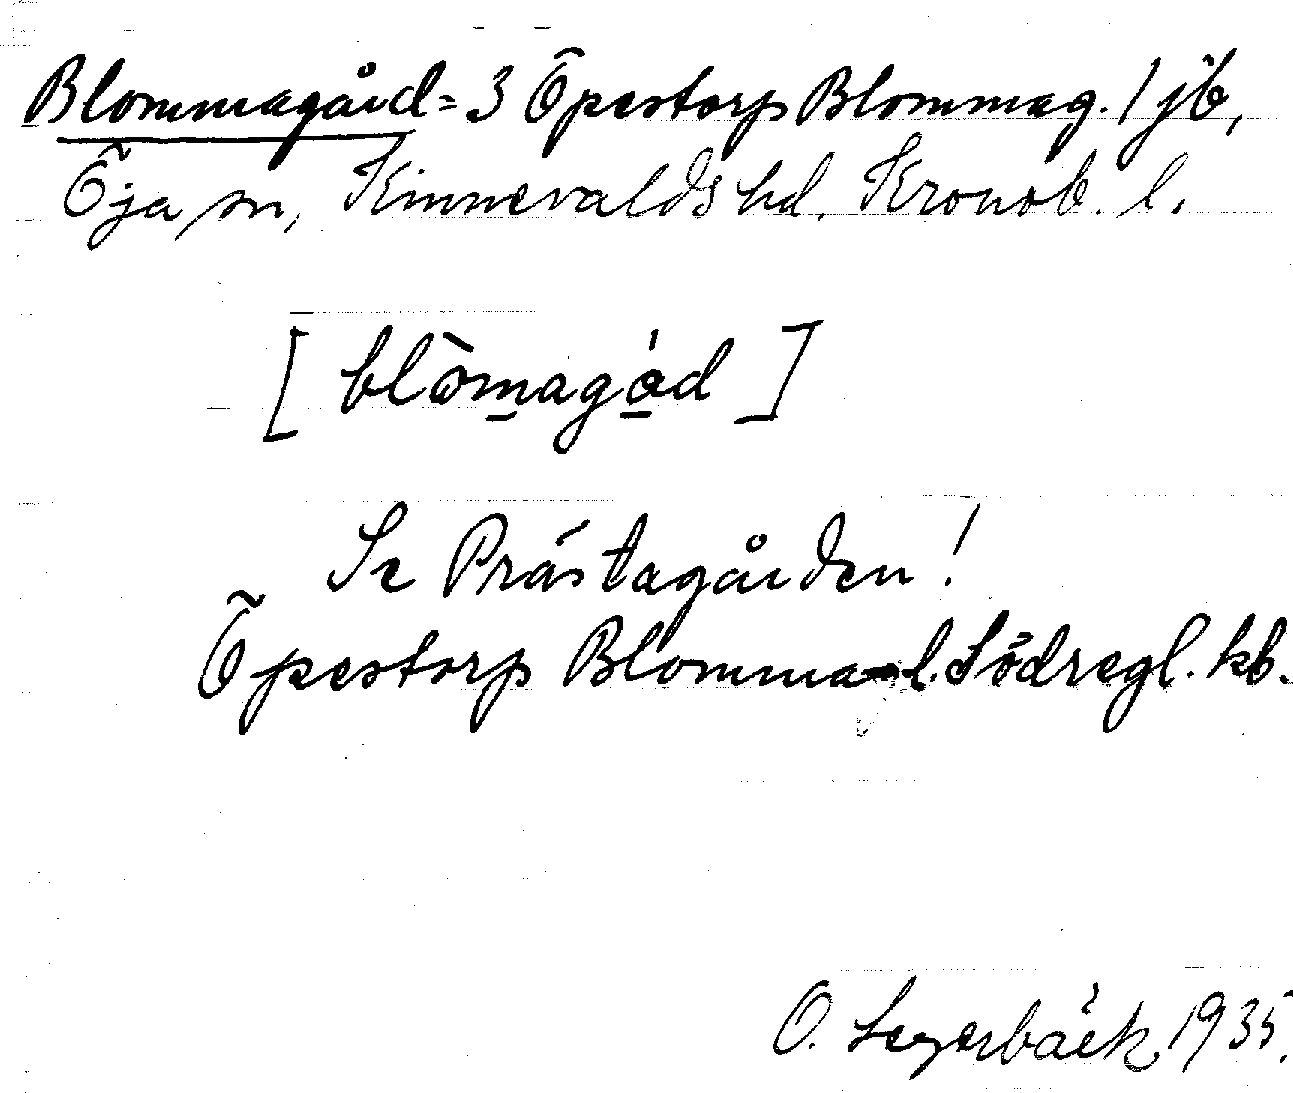 Blommagård = 3 Öpestorp Blommag. 1 jb,
Öja sn, Kinnevalds hd. Kronob. l.
[ blòmagåd ]
Se Prästagården!
Öpestorp Blomma l. Södregl. kb.
O. Segerbäck 1935.